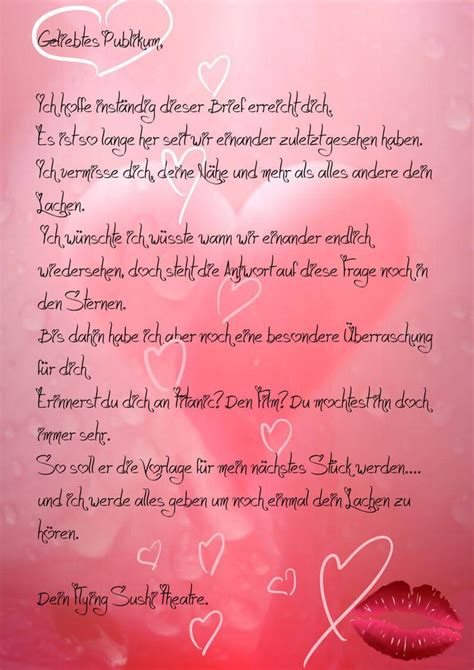 Geliebtes Publikum,
Ich hoffe inständig dieser Brief erreicht dich.
Es ist so lange her seit wir einander zuletzt gesehen haben.
Ich vermisse dich, deine Nähe und mehr als alles andere dein
Lachen.
Ich wünschte ich wüsste wann wir einander endlich
wiedersehen, doch steht die Antwort auf diese Frage noch in
den Sternen.
Bis dahin habe ich aber noch eine besondere Überraschung
für dich
Erinnerst du dich an Titanic? Den Film? Du mochtest ihn doch
immer sehr.
So soll er die Vorlage für mein nächstes Stück werden....
und ich werde alles geben um noch einmal dein Lachen zu
hören.
Dein Flying Sushi Theatre.